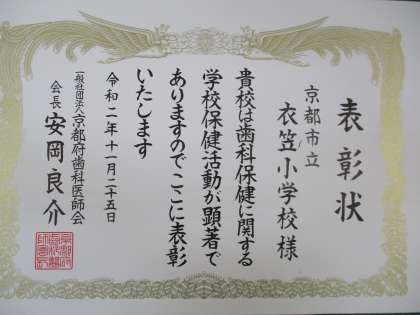 表彰状
京都市立
衣笠小学校様
貴校は歯科保健に関する
学校保健活動が顕著で
ありますのでここに表彰
いたします
令和二年十一月二十五日
一般社団法人京都府歯科医師会
会長 安岡良介